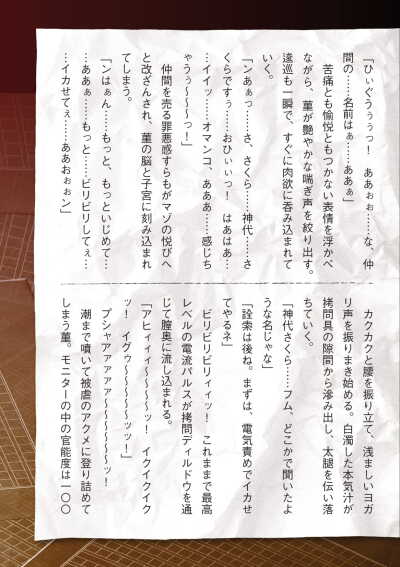 「ひぃぐうぅぅっ！　ああぉぉ……な、仲
間の……名前はぁ……ああぁ」
　苦痛とも愉悦ともつかない表情を浮かべ
ながら、菫が艶やかな喘ぎ声を絞り出す。
逡巡も一瞬で、すぐに肉欲に呑み込まれて
いく。
「ンあぁっ……さ、さくら……神代……さ
くらですぅ……おひぃぃっ！　はあはあ…
…イイッ……オマンコ、あああ……感じち
ゃうぅ～～～っ！」
　仲間を売る罪悪感すらもがマゾの悦びへ
と改ざんされ、菫の脳と子宮に刻み込まれ
てしまう。
「ンはぁん……もっと、もっといじめて…
…ああぁ……もっと……ビリビリしてぇ…
…イカせてぇ……ああおぉぉン」
　カクカクと腰を振り立て、浅ましいヨガ
リ声を振りまき始める。白濁した本気汁が
拷問具の隙間から滲み出し、太腿を伝い落
ちていく。
「神代さくら……フム、どこかで聞いたよ
うな名じゃな」
「詮索は後ね。まずは、電気責めでイカせ
てやるネ」
　ビリビリビリィィッ！　これまで最高
レベルの電流パルスが拷問ディルドウを通
じて膣奥に流し込まれる。
「アヒィィィ～～～～ッ！　イクイクイク
ッ！　イグゥ～～～～～ッッ！」
　プシャアァァァァ～～～～～～ッ！
　潮まで噴いて被虐のアクメに登り詰めて
しまう菫。モニターの中の官能度は一〇〇